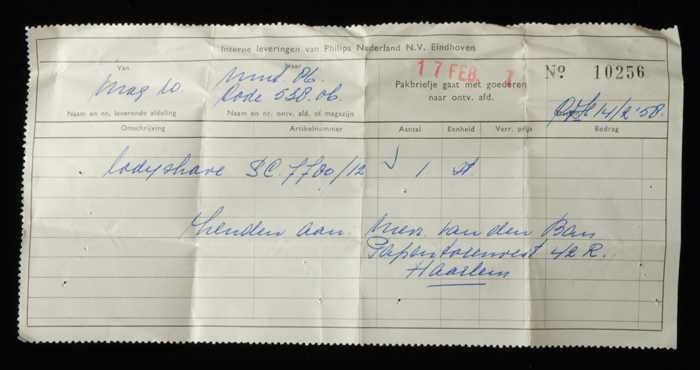 Interne leveringen van Philips Nederland N.V. Eindhoven
Van
Naar
17 FEB.
No 10256
Mag 10.
Code 538.06.
Pakbriefje gaat met goederen
naar ontv. afd.
Naam en nr. leverende afdeling
Naam en nr. ontv. afd. of magazijn
14/2 '58.
Omschrijving Artikelnummer Aantal Eenheid Verr. prijs Bedrag
ladyshave SC. 7700/12 1 st
zenden aan. Mevr. van den Ban
Papentorenvest 42 R.
Haarlem